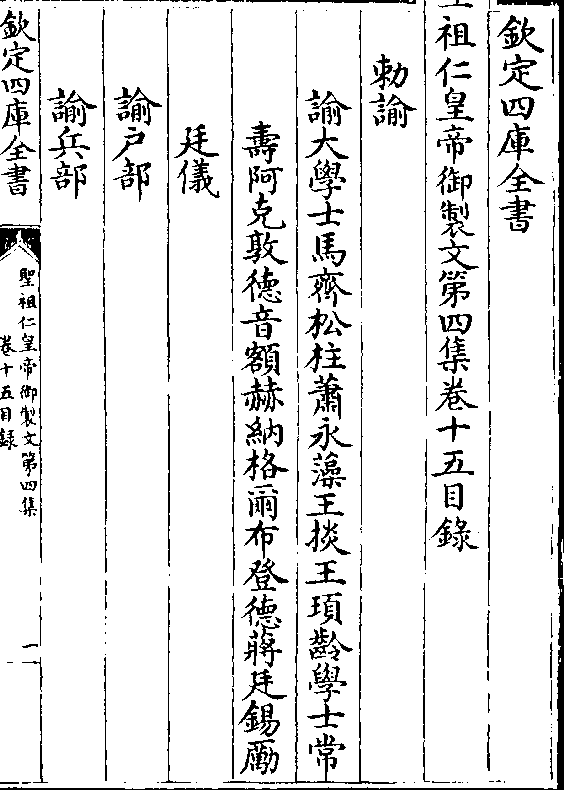 欽定四庫全書
聖祖仁皇帝御製文第四集卷十五目錄
勅諭
諭大學士馬齊松柱蕭永藻王掞王頊齡學士常
壽阿克敦德音額赫納格爾布登德蔣廷錫勵
廷儀
諭戶部
諭兵部
欽定四庫全書
聖祖仁皇帝御製文第四集
卷十五目錄
一